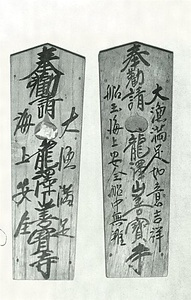 奉勧請龍澤山善寳寺
大漁満足如意吉祥
船玉海上安全船中無難
奉勧請龍澤山善寳寺
大漁満足
海上安全